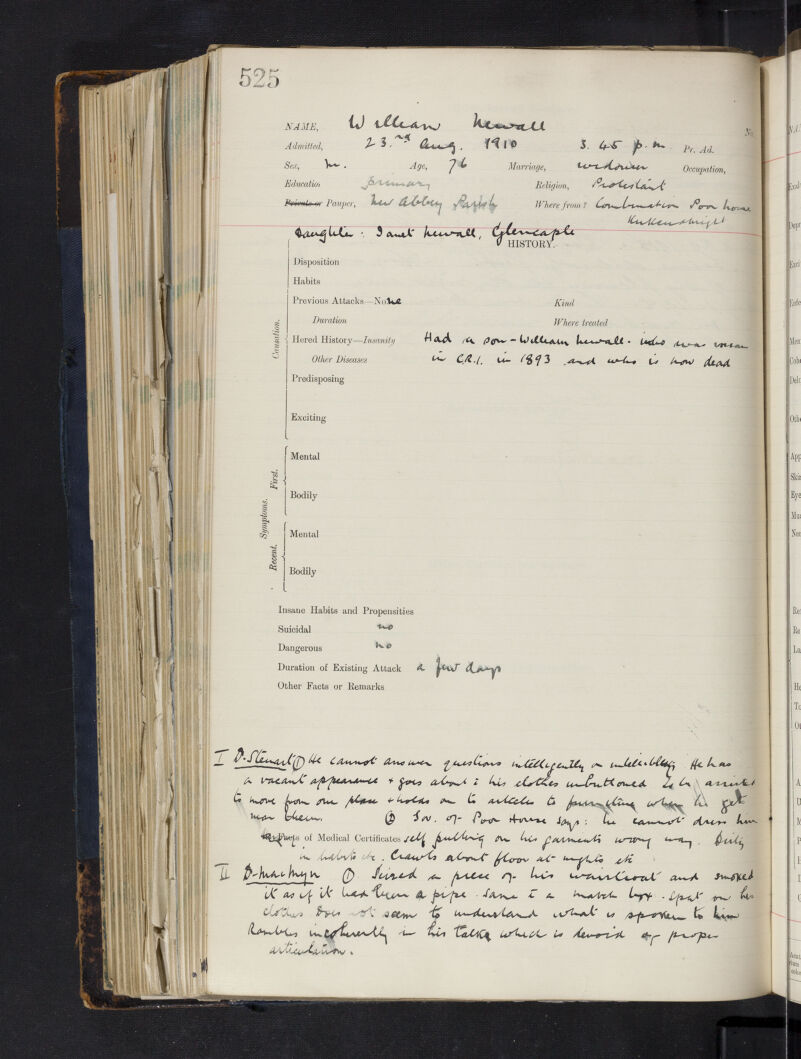 525
NAME, William Newall No.
Admitted, 23.rd Aug. 1910 3.45 p.m. Pr. Ad.
Sex, M. Age, 76 Marriage, widower Occupation,
Education primary Religion, Protestant
Private or Pauper, New Abbey Parish Where from? Combination Poor house
Kirkcudbright
Daughter: Janet Newall, Glencaple
HISTORY.
Disposition
Habits
Previous Attacks—None Kind
Duration Where treated
Causation.
Hered History—Insanity Had a son - William Newall - who was insane
Other Diseases in C.R.I. in 1893 and who is now dead
Predisposing
Exciting
Symptoms.
First.
Mental
Bodily
Recent.
Mental
Bodily
Insane Habits and Propensities
Suicidal no
Dangerous no
Duration of Existing Attack a few days
Other Facts or Remarks
I Dr. Stewart ① He cannot answer questions intelligently or intelligibly He has
a vacant appearance & goes about c his clothes unbuttoned has to be assisted
to move from one place & holds on to articles to furniture when he gets
near them. ② Gov. of Poor House says: he cannot dress him
Facts of Medical Certificates self putting on his garments wrong way. Dirty
in habits etc. Crawls about floor at nights etc
II Dr. MacMyn ① Seized a piece of his waistcoat and smoked
it as if it had been a pipe. Same c a match box. Spat on his
clothes Does not seem to understand what is spoken to him
Rambles incoherently in his talk which is devoid of proper
articulation.